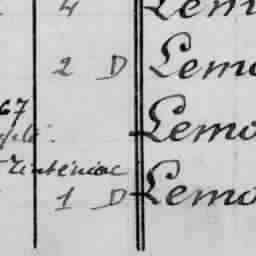 4 Lem
2 D Lemo
67
Lemo
Tinténiac
1 D Lemo